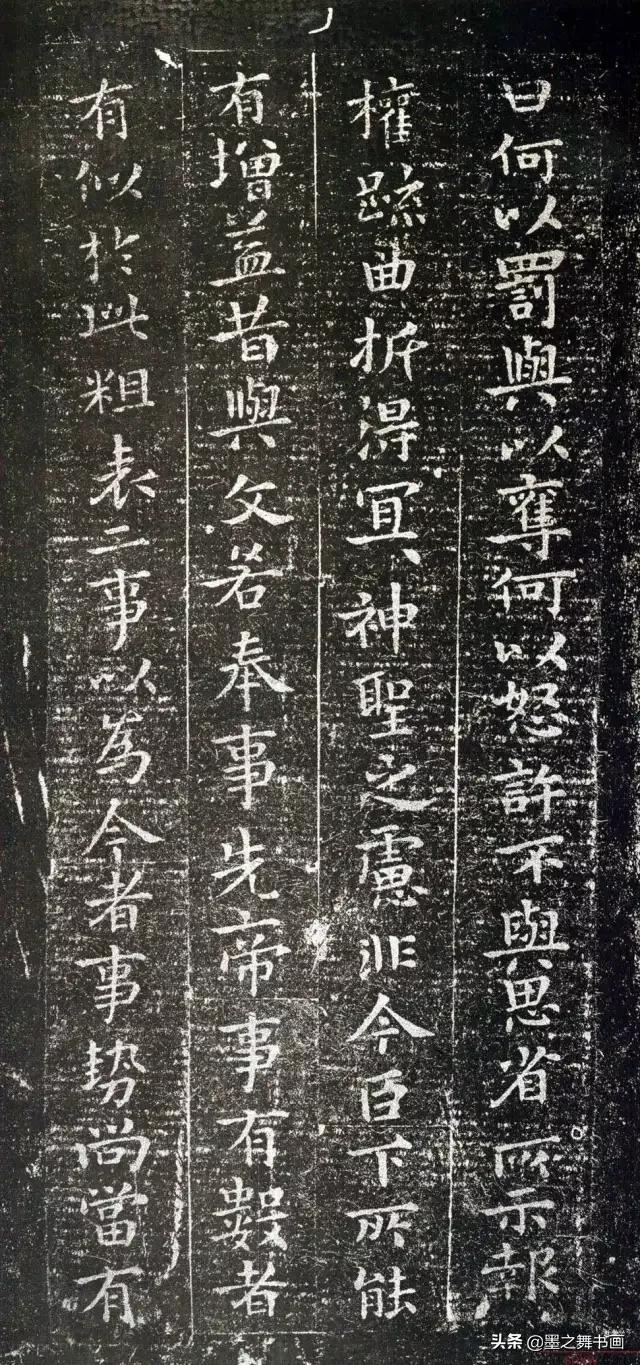 曰何以罰與以奪何以怒許不與思省所示報
權疏曲折得冝神聖之慮非今臣下所能
有增益昔與文若奉事先帝事有數者
有似於此粗表二事以為今者事勢尚當有
头条 @墨之舞书画